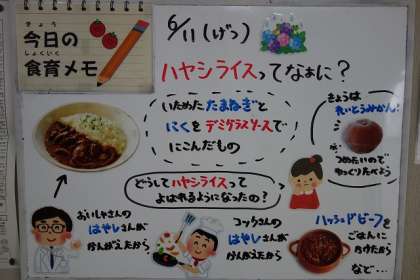 きょう
今日の
しょくいく
食育メモ
6/11(げつ)
ハヤシライスってなぁに?
いためた たまねぎと
にくをデミグラスソースで
にこんだもの
きょうは
れいとうみかん!
つめたいので
ゆっくりたべよう
どうしてハヤシライスって
よばれるようになったの?
おいしゃさんの
はやしさんが
かんがえたから
コックさんの
はやしさんが
かんがえたから
ハッシュドビーフを
ごはんに
かけたから
など…